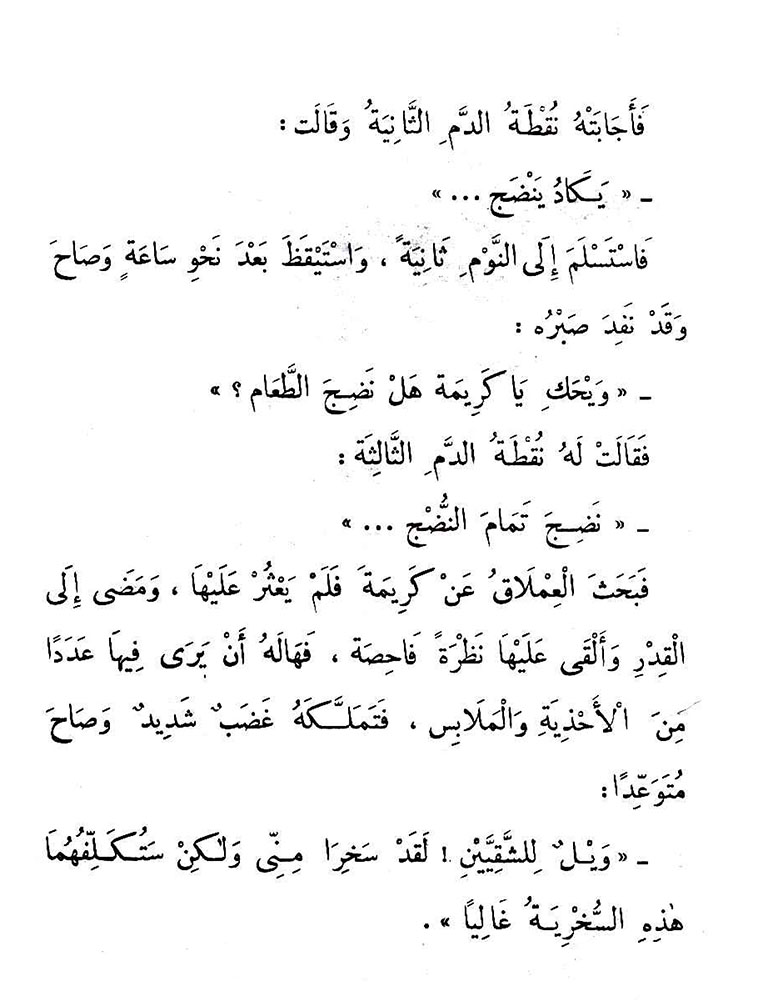 فَأَجَابَتْهُ نُقْطَةُ الدَّمِ الثَّانِيَةُ وَقَالَت :
ـ « يَكَادُ يَنْضَج ... »
فَاسْتَسْلَمَ إِلَى النَّوْمِ ثَانِيَةً ، وَاسْتَيْقَظَ بَعْدَ نَحْوِ سَاعَةٍ وَصَاحَ
وَقَدْ نَفِدَ صَبْرُه :
ـ « وَيْحَكِ يَا كَرِيمَة هَلْ نَضِجَ الطَّعَام ؟ »
فَقَالَتْ لَهُ نُقْطَةُ الدَّمِ الثَّالِثَة :
ـ « نَضِجَ تَمَامَ النُّضْج ... »
فَبَحَثَ الْعِمْلَاقُ عَنْ كَرِيمَةَ فَلَمْ يَعْثُرْ عَلَيْهَا ، وَمَضَى إِلَى
الْقِدْرِ وَأَلْقَى عَلَيْهَا نَظْرَةً فَاحِصَة ، فَهَالَهُ أَنْ يَرَى فِيهَا عَدَدًا
مِنَ الْأَحْذِيَةِ وَالْمَلَابِس ، فَتَمَلَّكَهُ غَضَبٌ شَدِيدٌ وَصَاحَ
مُتَوَعِّدًا :
ـ « وَيْلٌ لِلشَّقِيَّيْنِ ! لَقَدْ سَخِرَا مِنِّى وَلٰكِنْ سَتُكَلِّفُهُمَا
هٰذِهِ السُّخْرِيَةُ غَالِيًا » .